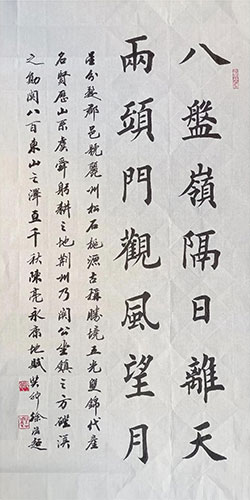 八盤嶺隔日離天
兩頭門觀風望月
星分婺郡邑號麗州松石桃源古稱勝境五光翼錦代產
名賢歷山原虞舜躬耕之地荆州乃關公坐鎮之方磻溪
之勛閥八百東山之澤直千秋陳亮永康地賦